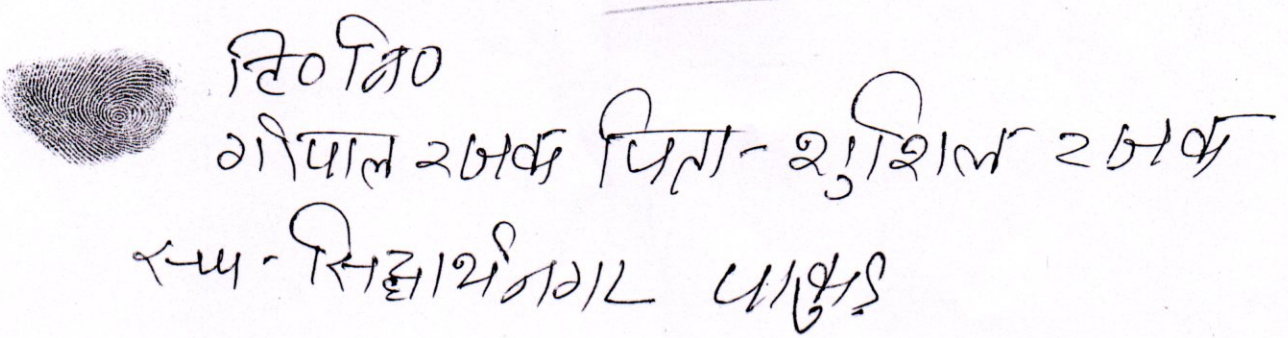 टि० नि०
गोपाल रजक पिता - शुशिल रजक
सिद्धार्थनगर पाकुड़